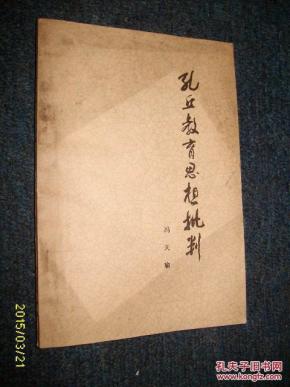 孔丘教育思想批判
冯天瑜
2015/03/21
孔夫子旧书网